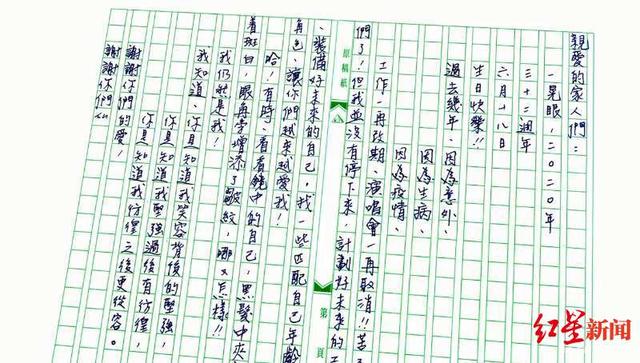 親愛的家人們：
一晃眼，二〇二〇年
三十二週年
六月十八日
生日快樂！！
過去幾年、因為意外、
因為生病、
因為疫情、
工作一再改期、演唱會一再取消！！苦了
們了！但我並沒有停下來，計劃好未來的工
、裝備好未來的自己，找一些匹配自己年齡
角色、讓你們越來越愛我！
哈！有時、看看鏡中的自己，黑髮中夾
着斑白，眼角旁增添了皺紋，哪又怎樣！！
我仍然是我！
我知道、你是知道我笑容背後的堅強，
你是知道我堅強過後有彷徨，
你是知道我彷徨之後更從容。
謝謝你們的愛！
謝謝你們
原稿紙
第 頁
红星新闻